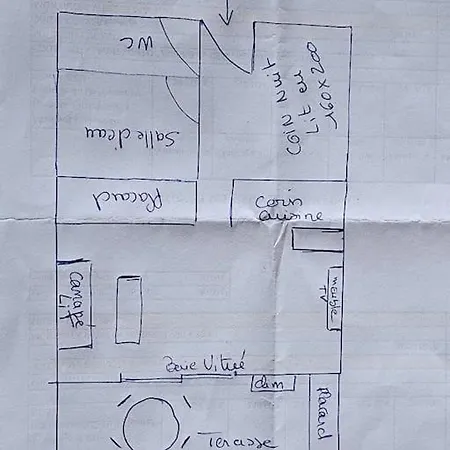 WC
COIN Nuit
Lit en
160 x 200
Salle d'eau
Placard
Coin
Cuisine
Canapé
Lit
meuble
TV
Baie Vitrée
clim
Placard
Terasse